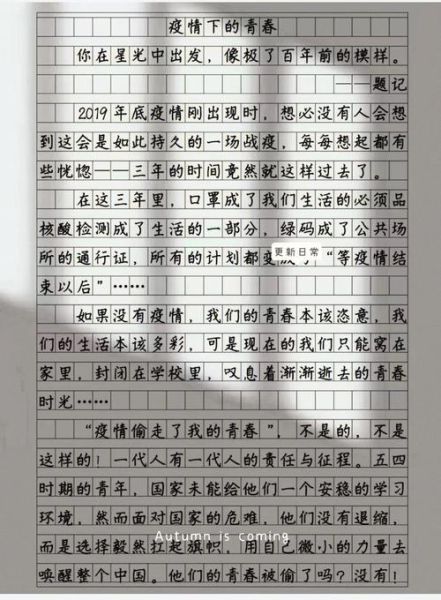 疫情下的青春
你在星光中出发，像极了百年前的模样。
——题记
2019年底疫情刚出现时，想必没有人会想
到这会是如此持久的一场战疫，每每想起都有
些恍惚——三年的时间竟然就这样过去了。
在这三年里，口罩成了我们生活的必须品
核酸检测成了生活的一部分，绿码成了公共场
所的通行证，所有的计划都变成了“等疫情结
更新日常
束以后”……
如果没有疫情，我们的青春本该恣意，我
们的生活本该多彩，可是现在的我们只能窝在
家里，封闭在学校里，叹息着渐渐逝去的青春
时光……
“疫情偷走了我的青春”，不是的，不是
这样的！一代人有一代人的责任与征程。五四
时期的青年，国家未能给他们一个安稳的学习
环境，然而面对国家的危难，他们没有退缩，
Autumn is coming
而是选择毅然扛起旗帜，用自己微小的力量去
唤醒整个中国。他们的青春被偷了吗？没有！